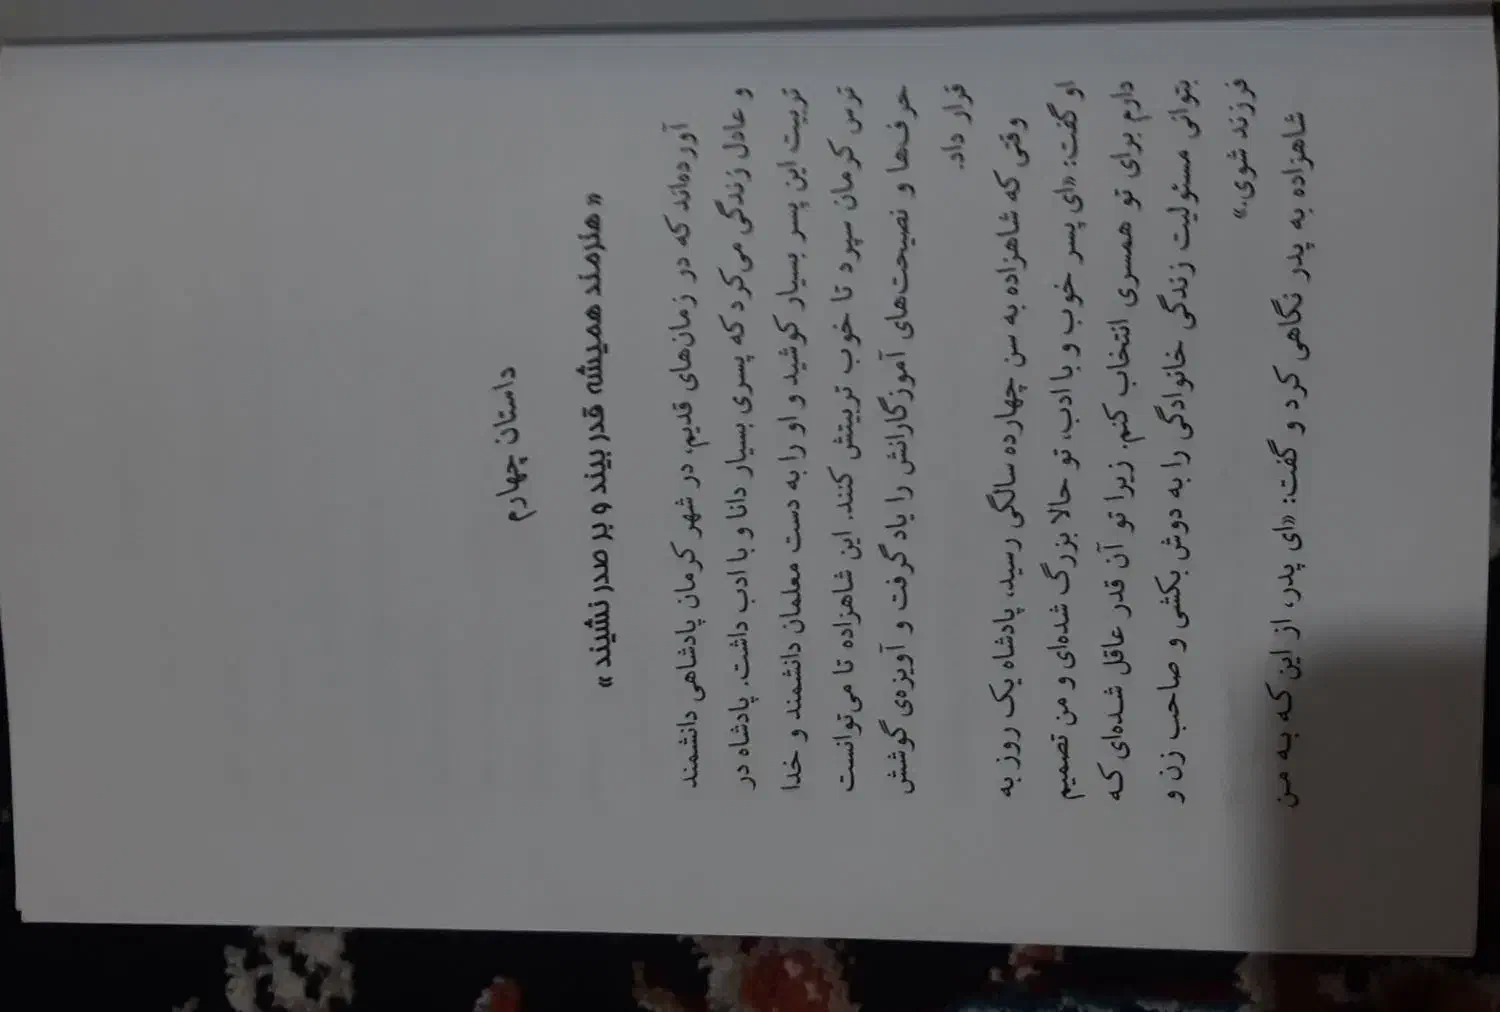 داستان چهارم
«هنرمند همیشه قدر بیند و بر صدر نشیند»
آورده‌اند که در زمان‌های قدیم، در شهر کرمان پادشاهی دانشمند
و عادل زندگی می‌کرد که پسری بسیار دانا و با ادب داشت. پادشاه در
تربیت این پسر بسیار کوشید و او را به دست معلمان دانشمند و خدا
ترس کرمان سپرد تا خوب تربیتش کنند. این شاهزاده تا می‌توانست
حرف‌ها و نصیحت‌های آموزگارانش را یاد گرفت و آویزه‌ی گوشش
قرار داد.
وقتی که شاهزاده به سن چهارده سالگی رسید، پادشاه یک روز به
او گفت: «ای پسر خوب و با ادب، تو حالا بزرگ شده‌ای و من تصمیم
دارم برای تو همسری انتخاب کنم. زیرا تو آن قدر عاقل شده‌ای که
بتوانی مسئولیت زندگی خانوادگی را به دوش بکشی و صاحب زن و
فرزند شوی.»
شاهزاده به پدر نگاهی کرد و گفت: «ای پدر، از این که به من